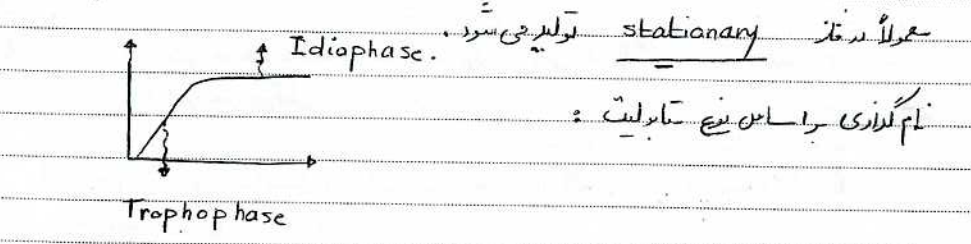 معمولاً در فاز stationary تولید می شود.
Idiophase.
نام گذاری براساس نوع متابولیت :
Trophophase